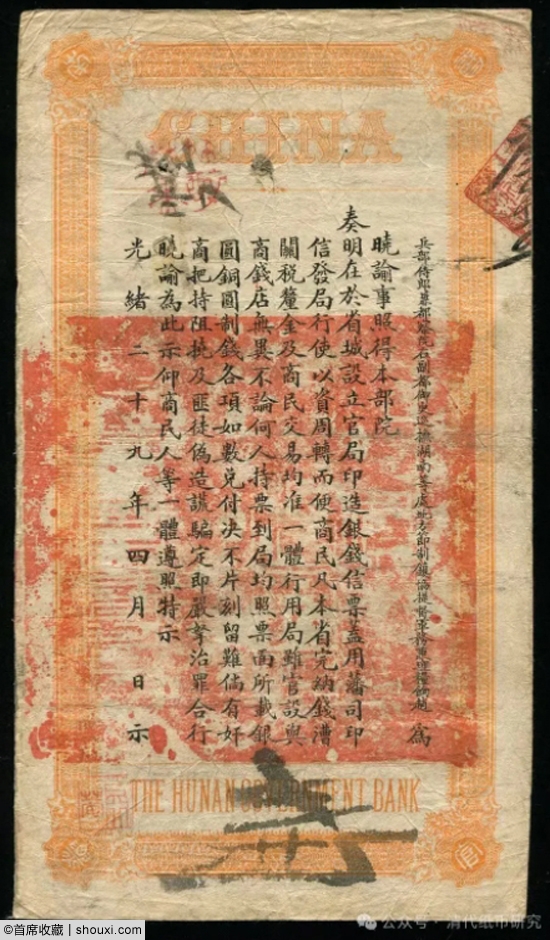 CHINA
兵部侍郎兼都察院右副都御史巡撫湖南等處地方節制各鎮兼理糧餉趙 為
曉諭事照得本部院
奏明在於省城設立官局印造銀錢信票蓋用藩司印
信發局行使以資周轉而便商民凡本省完納錢漕
關稅釐金及商民交易均准一體行用局雖官設與
商錢店無異不論何人持票到局均照票面所載銀
圓銅圓制錢各項如數兌付決不片刻留難倘有奸
商把持阻撓及匪徒偽造謊騙定即嚴拏治罪合行
曉諭為此示仰商民人等一體遵照特示
光緒二十九年四月 日示
THE HUNAN GOVERNMENT BANK
公众号·清代纸币研究
@首席收藏 | shouxi.com